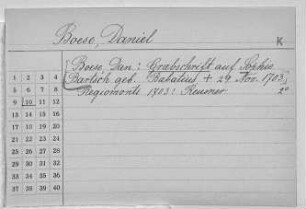 Boese, Daniel
K
[Boese, Dan.: Grabschrift auf Sophie
Bartsch geb. Rabatius + 29. Nov. 1703]
Regiomonti 1703: Reusner. 2°
1 2 3 4
5 6 7 8
9 10 11 12
13 14 15 16
17 18 19 20
21 22 23 24
25 26 27 28
29 30 31 32
33 34 35 36
37 38 39 40